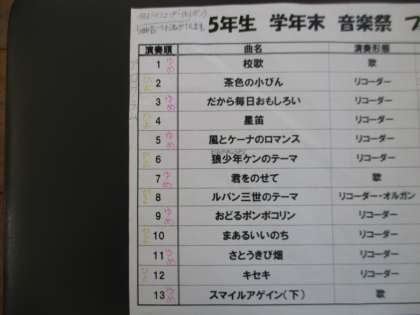 5年生 学年末 音楽祭 プ
演奏順 曲名 演奏形態
1 校歌 歌
2 茶色の小びん リコーダー
3 だから毎日おもしろい リコーダー
4 星笛 リコーダー
5 風とケーナのロマンス リコーダー
6 狼少年ケンのテーマ リコーダー
7 君をのせて 歌
8 ルパン三世のテーマ リコーダー・オルガン
9 おどるポンポコリン リコーダー
10 まあるいいのち リコーダー
11 さとうきび畑 リコーダー
12 キセキ リコーダー
13 スマイルアゲイン(下) 歌